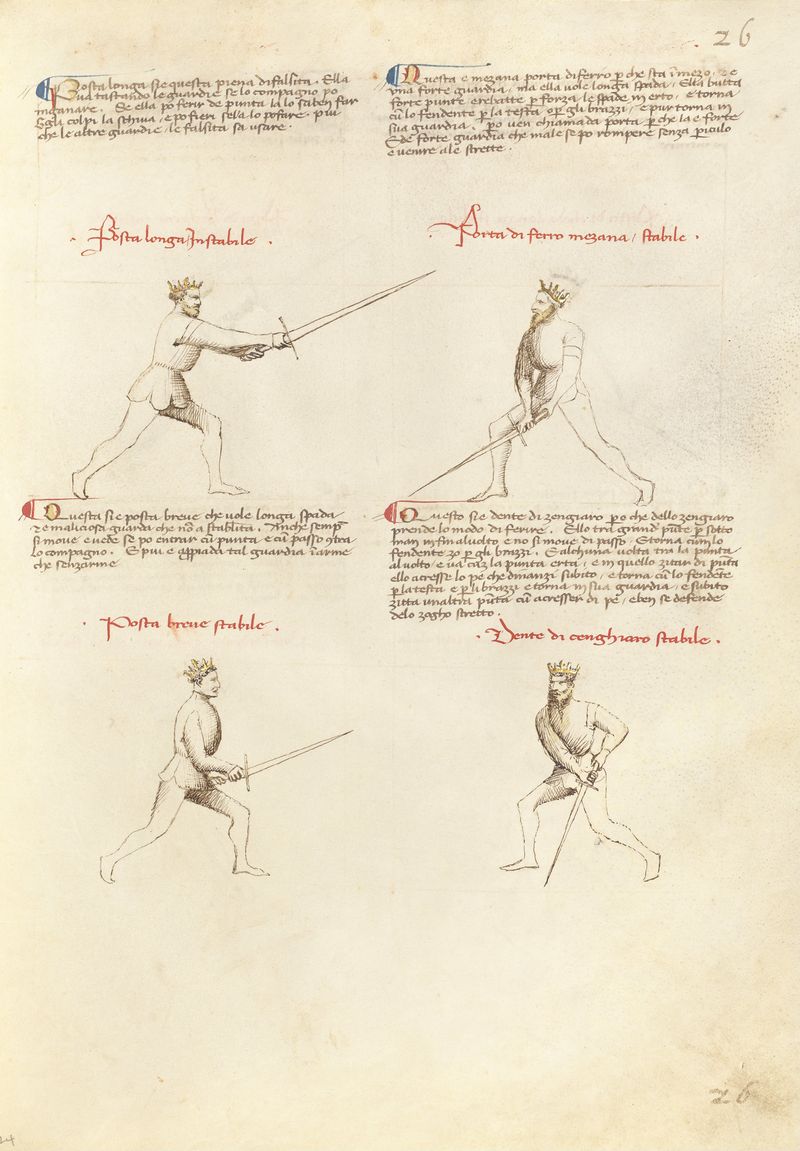 26
Posta longa si e questa piena di falsita. Ella
va tastando le guardie se lo compagno po
inganare. Se ella po ferir de punta la lo sa ben far
E gli colpi la schiva, e po fieri s'ela lo po fare. piu
che le altre guardie, le falsita sa usare.
Posta longa Instabile.
Questa e mezana porta di ferro p che sta in mezo. 7 e
una forte guardia, ma ella vole longa spada. Ella butta
forte punte e rebatte p forza le spade in erto, e torna
cu lo fendente p la testa o p gli brazzi, e pur torna in
sua guardia. po ven chiamada porta p che la e forte
E de forte guardia che male se po rompere senza piculo
e venire ale strette.
Porta di ferro mezana, stabile.
Questa si e posta breve che vole longa spada
7 e maliciosa guarda che no a stablita. Anche semp
si move e vede se po entrar cu punta e cu passo contra
lo compagno. E piu e appiada tal guardia in arme
che senz'arme
Posta breve stabile.
Questo si e dente di zengiaro p o che dello zengiaro
prende lo modo di ferire. Ello tra grand punte p sotto
man in fin al volto e no si move di passo. E torna cum lo
fendente zo p gli brazzi. E alchuna volta tra la punta
al volto e va cu la punta erta, e in quello zitar di punta
ello acresse lo pe che dinanzi subito, e torna cu lo fendente
p la testa e p li brazzi e torna in sua guardia, e subito
zitta un'altra punta cu acresser di pe, e ben se defende
delo zogho stretto.
Dente di cenghiaro stabile.
26